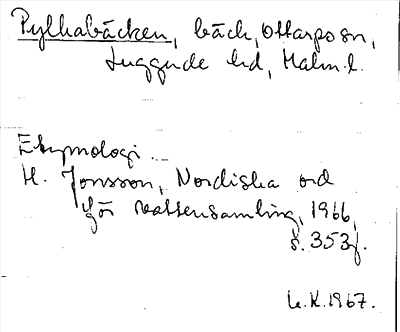 Pylkabäcken, bäck, Ottarps sn,
Luggude hd, Malm. l.
Etymologi
H. Jonsson, Nordiska ord
för vattensamling, 1966,
s. 353f.
L.K. 1967.